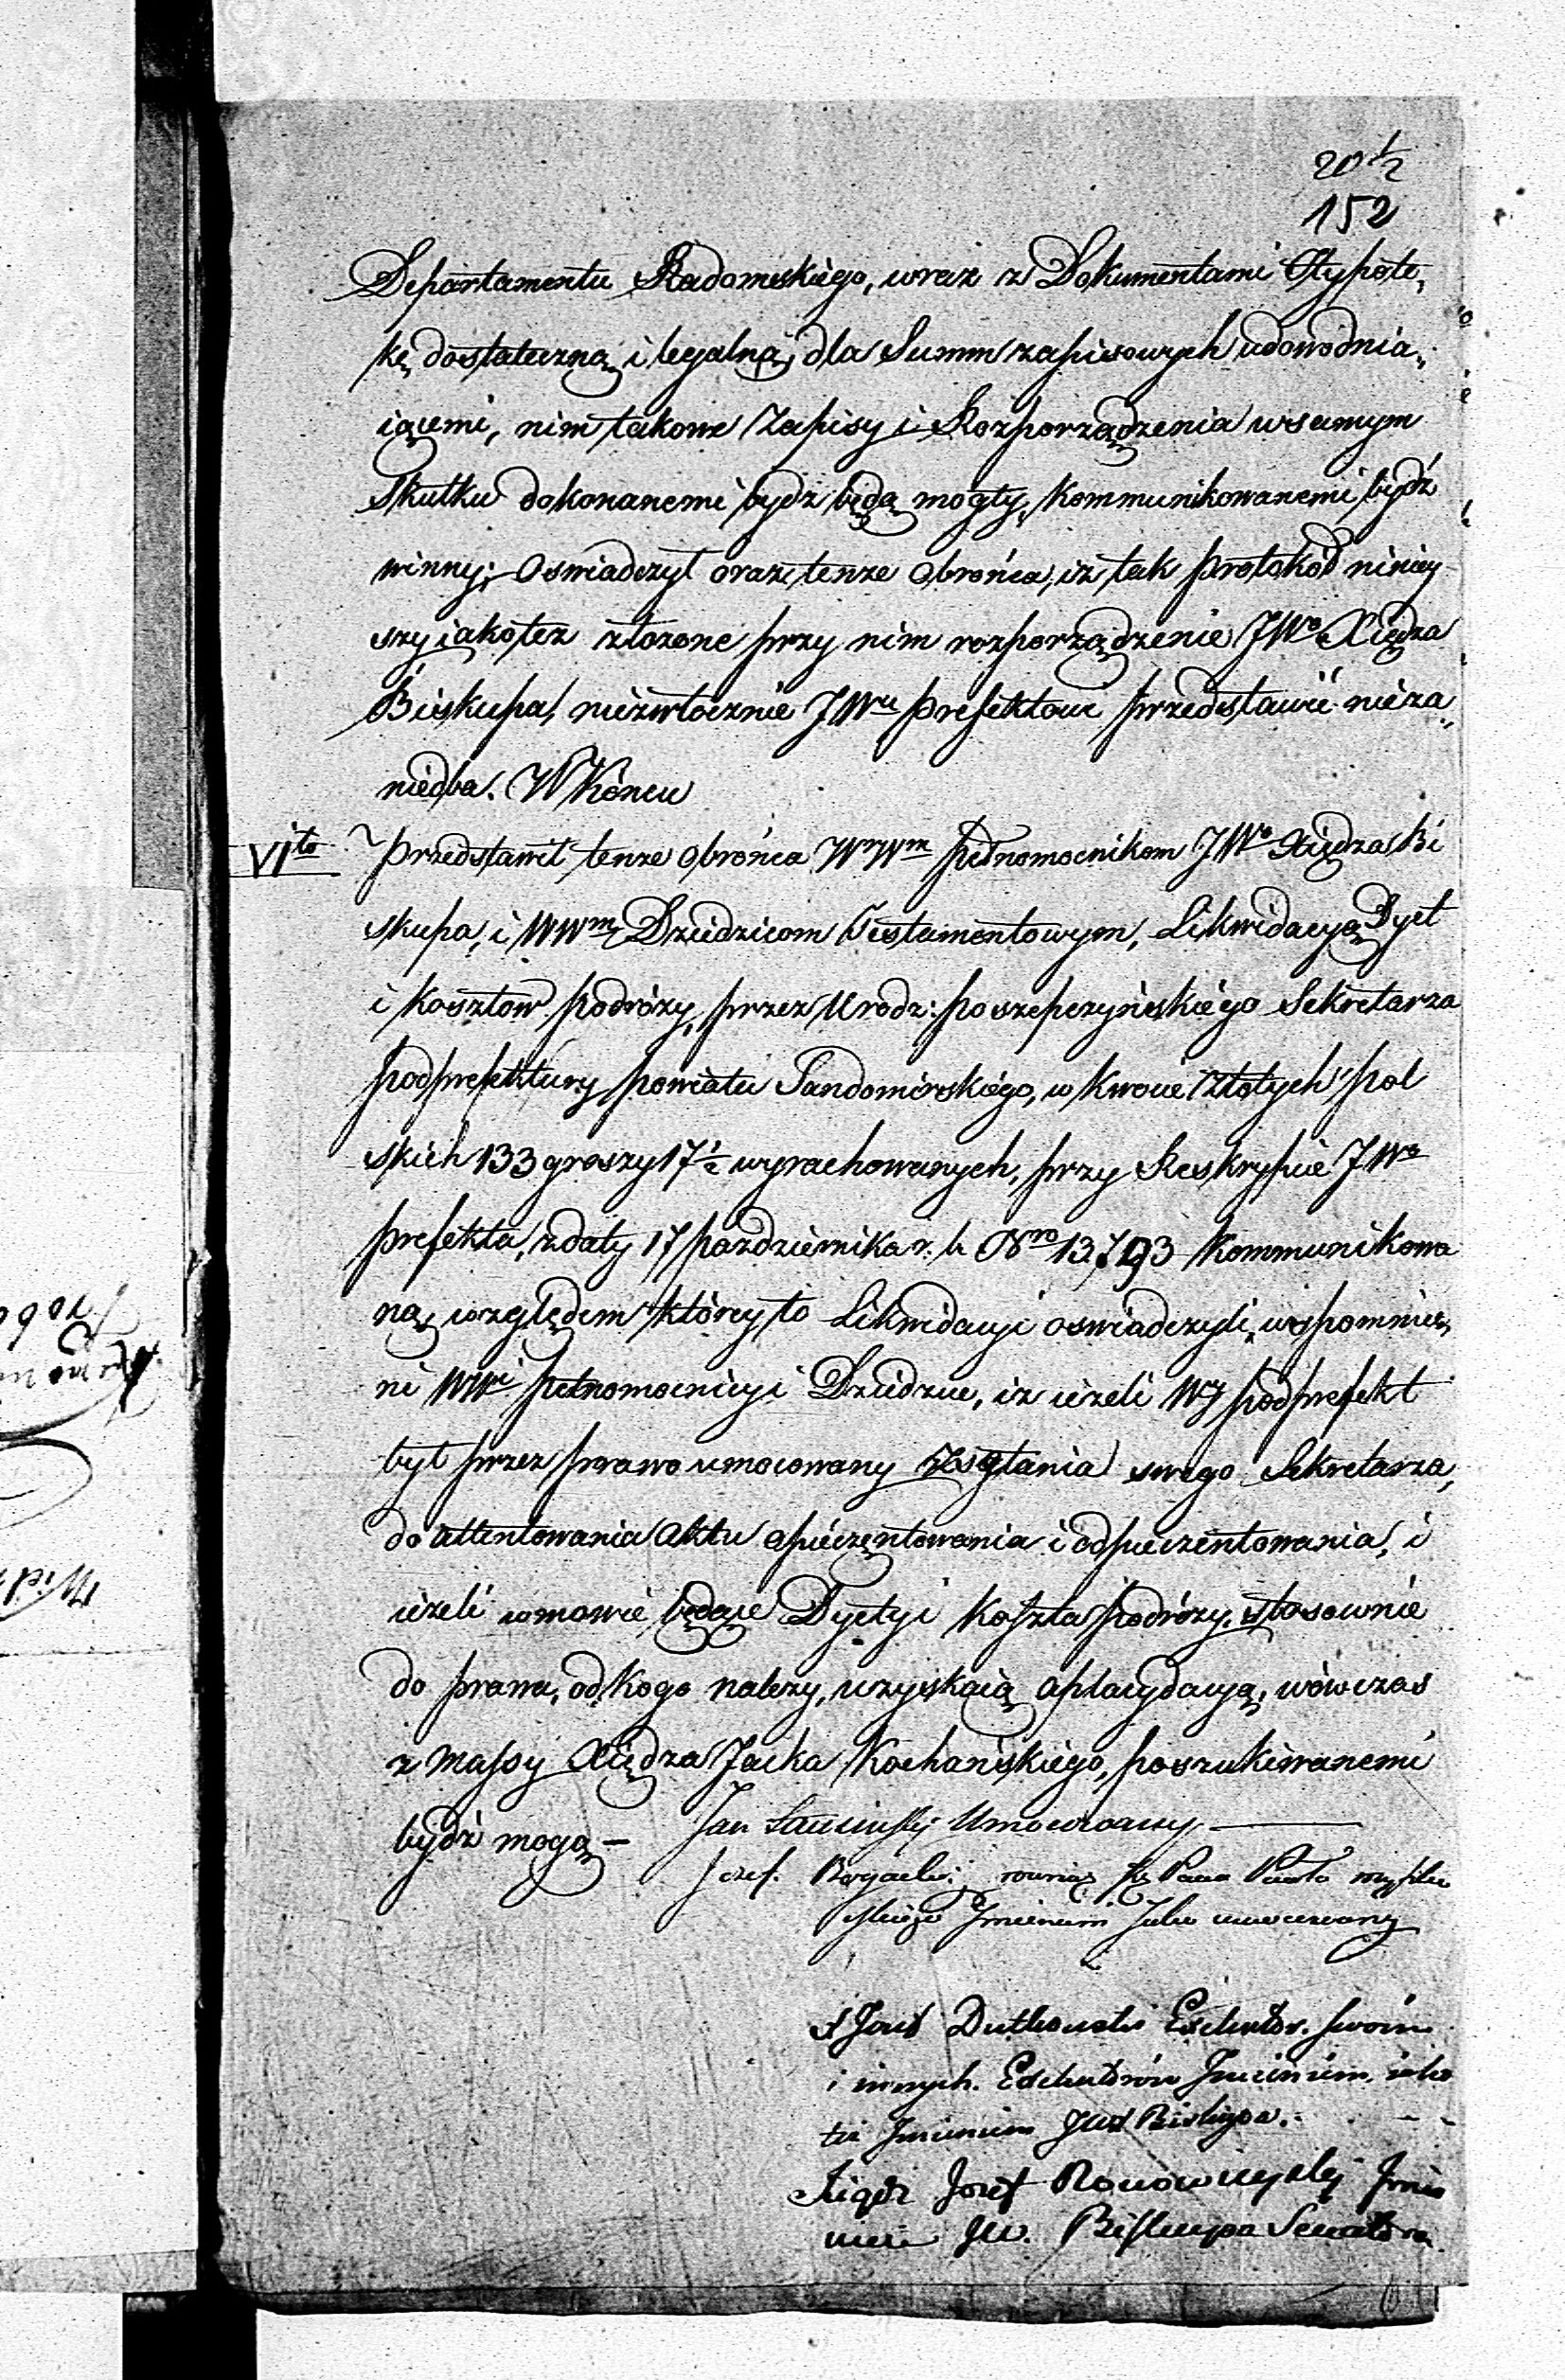 20 1/2
152
Departamentu Radomskiego, wraz z Dokumentami Hypote„
kę dostateczną i legalną, dla Summ zapisowych udowodnia„
iącemi, nim takowe Zapisy i Rozporządzenia w samym
skutku dokonanemi bydz będą mogły, kommunikowanemi bydź
winny; Oswiadczył oraz tenze Obrońca, iz tak protokół niniey
szy iakotez złozone przy nim rozporządzenie JWo Xiędza
Biskupa, niezwłocznie JWu Prefektowi przedstawić nieza„
niedba. W Koncu
VIto Przedstawił tenze Obrońca WWm pełnomocnikom JWo Xiędza Bi
skupa, i WWm Dziedzicom Testamentowym, Likwidacyą Dyet
i kosztow podrózy, przez Urodz: Poszepczyńskiego Sekretarza
podprefektury powiatu Sandomirskiego, w kwocie Złotych pol
skich 133 groszy 17 1/2 wyrachowanych, przy Reskrypcie JWo
prefekta, z daty 17 pazdziernika r. b. Nro 13,793 kommunikowa
ną, względem któreyto Likwidacyi oswiadczyli, wspomnie„
ni WWi pełnomocnicy i Dziedzice, iz iezeli Wy podprefekt
był przez prawo umocowany zesłania swego Sekretarza,
do attentowania Aktu opieczętowania i odpieczentowania, i
iezeli w mowie będące Dyety i koszta podrózy, stosownie
do prawa, od kogo nalezy, uzyskaią aplacydacyą, wówczas
z massy Xiędza Jacka Kochańskiego, poszukiwanemi
bydź mogą –
Jan Umocowany
Jozef. rownież Pana
Imieniem Jako umocowany
X Jozef Dutkowski Exekutor. swoim
i innych. Exekutorów Imieniem. iako
tez Imieniem JWX Biskupa.
Xiądz Jozef Imie
niem JW. Biskupa Senatora